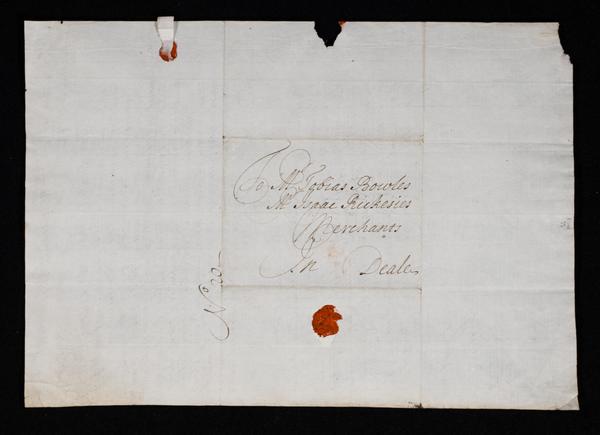 To Mr Tobias Bowles
Mr Isaac Rickesies
Merchants
In Deale
No 20